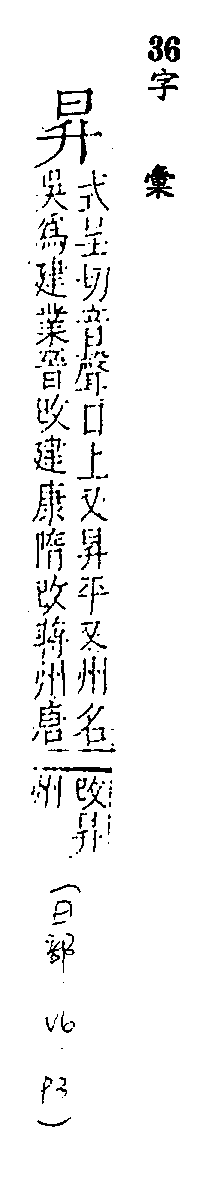 36
字彙
昇
式呈切音聲日上又昇平又州名
吳爲建業晉改建康隋改蔣州唐
改昇
州
(日部 V6 P3)